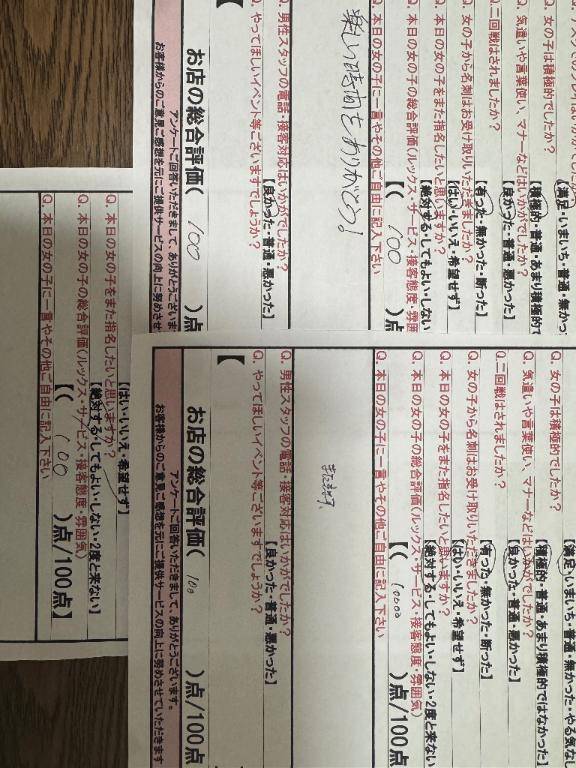 Q. 女の子は積極的でしたか?
【積極的・普通・あまり積極的で
Q. 気遣いや言葉使い、マナーなどはいかがでしたか?
【良かった・普通・悪かった】
Q. 二回戦はされましたか?
【有った・無かった・断った】
Q. 女の子から名刺はお受け取りいただきましたか?
【はい・いいえ・希望せず】
Q. 本日の女の子をまた指名したいと思いますか?
【絶対する・してもよい・しない
Q. 本日の女の子の総合評価(ルックス・サービス・接客態度・雰囲
【( 100
Q. 本日の女の子に一言やその他ご自由に記入下さい
楽しい時間をありがとう!
Q. 男性スタッフの電話・接客対応はいかがでしたか?
【良かった・普通・悪かった】
Q. やってほしいイベント等ございますでしょうか?
【
お店の総合評価( 100 )点
アンケートご回答いただきまして、ありがとうございま
お客様からのご意見ご感想を元にご提供サービスの向上に努めさせ
【満足・いまいち・普通・無かった・やる気なし
Q. 女の子は積極的でしたか?
【積極的・普通・あまり積極的ではなかった】
Q. 気遣いや言葉使い、マナーなどはいかがでしたか?
【良かった・普通・悪かった】
Q. 二回戦はされましたか?
【有った・無かった・断った】
Q. 女の子から名刺はお受け取りいただきましたか?
【はい・いいえ・希望せず】
Q. 本日の女の子をまた指名したいと思いますか?
【絶対する・してもよい・しない・2度と来ない
Q. 本日の女の子の総合評価(ルックス・サービス・接客態度・雰囲気)
【( 10000 )点/100点
Q. 本日の女の子に一言やその他ご自由に記入下さい
また来ます。
Q. 男性スタッフの電話・接客対応はいかがでしたか?
【良かった・普通・悪かった】
Q. やってほしいイベント等ございますでしょうか?
【
お店の総合評価( 100 )点/100点
アンケートご回答いただきまして、ありがとうございます。
お客様からのご意見ご感想を元にご提供サービスの向上に努めさせていただきます
【はい・いいえ・希望せず】
Q. 本日の女の子をまた指名したいと思いますか?
【絶対する・してもよい・しない・2度と来ない】
Q. 本日の女の子の総合評価(ルックス・サービス・接客態度・雰囲気)
【( 100 )点/100点】
Q. 本日の女の子に一言やその他ご自由に記入下さい